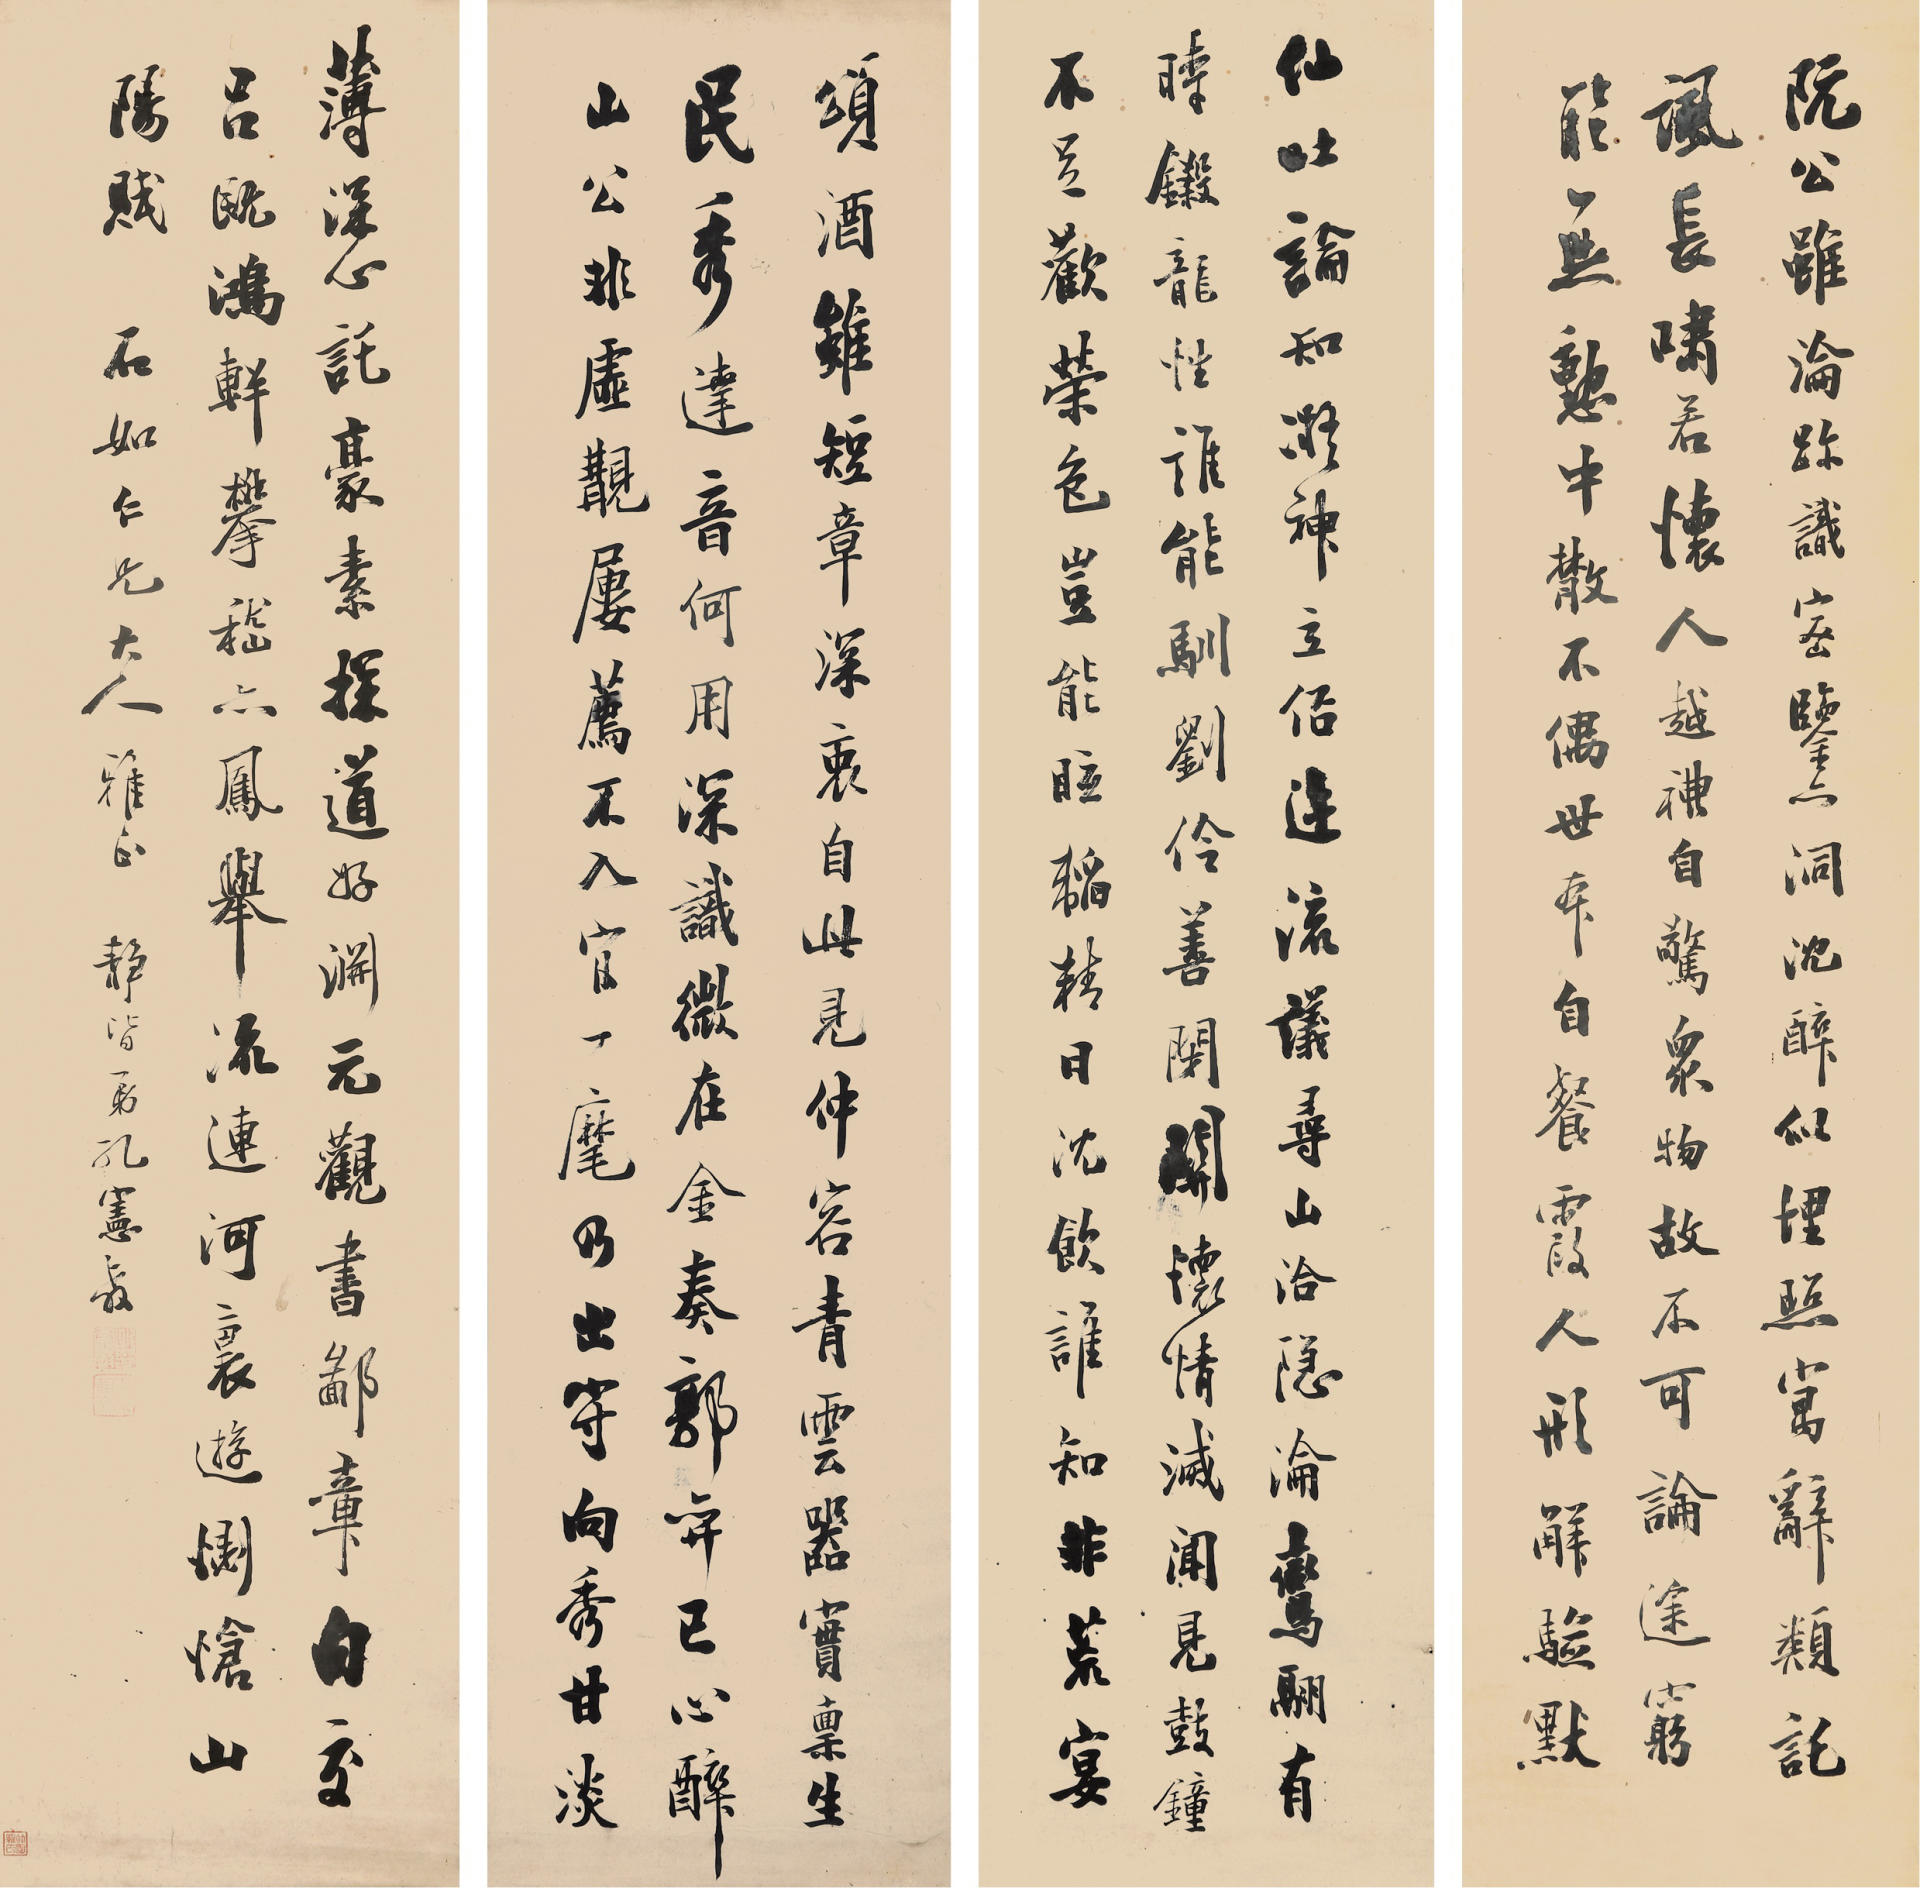 阮公雖淪跡識密鑒亦洞沈醉似埋照寓辭類託
諷長嘯若懷人越禮自驚衆物故不可論途窮
能無慟中散不偶世本自餐霞人形解驗默
仙吐論知凝神立俗迕流議尋山洽隱淪鸞翮有
時鎩龍性誰能馴劉伶善閉關懷情滅聞見鼓鐘
不足歡榮色豈能眩韜精日沈飲誰知非荒宴
頌酒雖短章深衷自此見仲容青雲器實稟生
民秀達音何用深識微在金奏郭弈已心醉
山公非虛覯屢薦不入官一麾乃出守向秀甘淡
薄深心託豪素探道好淵元觀書鄙章句交
呂既鴻軒攀嵇亦鳳舉流連河裏遊惻愴山
陽賦 石如仁兄大人雅正 靜階弟孔憲彀